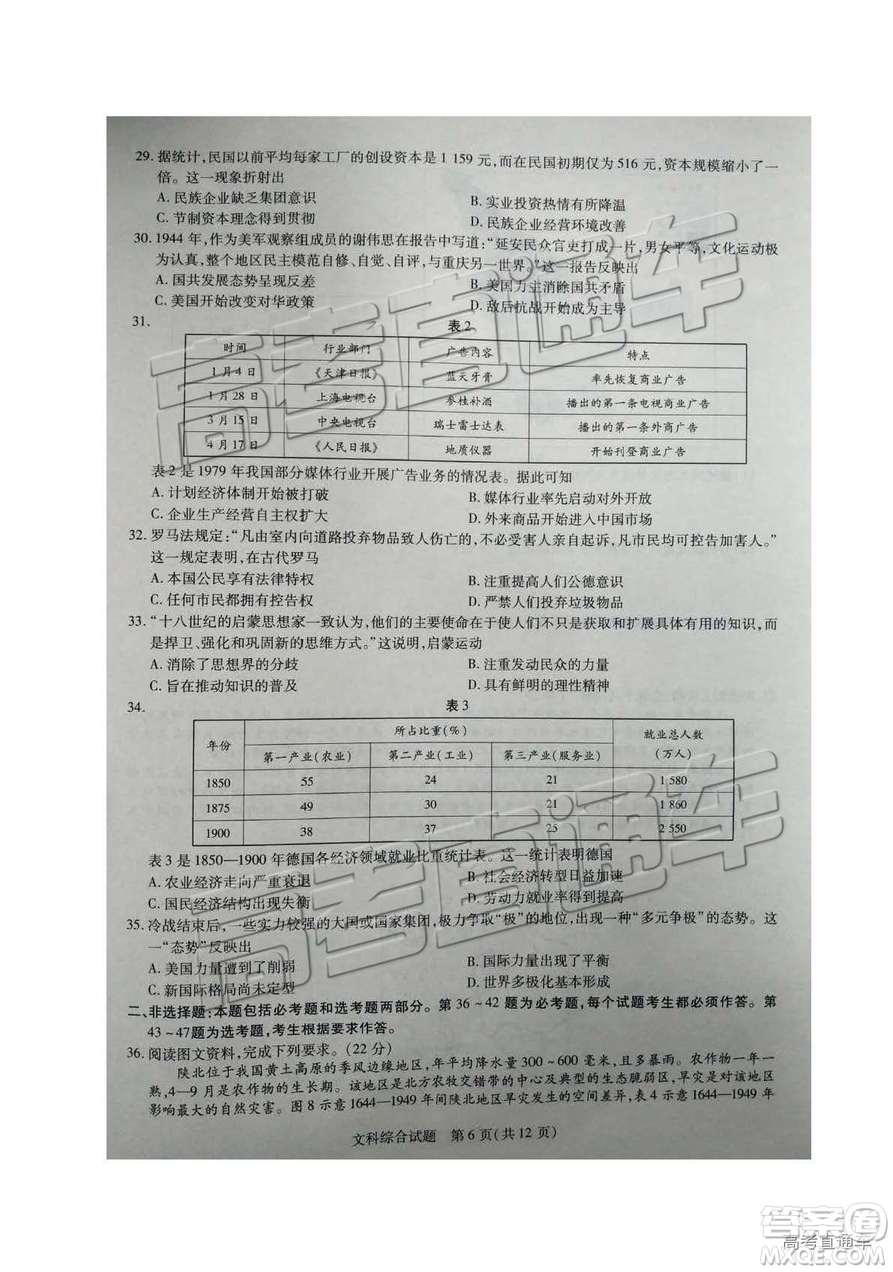 29. 据统计,民国以前平均每家工厂的创设资本是 1 159 元,而在民国初期仅为 516 元,资本规模缩小了一
倍。这一现象折射出
A. 民族企业缺乏集团意识 B. 实业投资热情有所降温
C. 节制资本理念得到贯彻 D. 民族企业经营环境改善
30. 1944 年,作为美军观察组成员的谢伟思在报告中写道:“延安民众官吏打成一片,男女平等,文化运动极
为认真,整个地区民主模范自修、自觉、自评,与重庆另一世界。”这一报告反映出
A. 国共发展态势呈现反差 B. 美国力主消除国共矛盾
C. 美国开始改变对华政策 D. 敌后抗战开始成为主导
31. 表 2
时间 行业部门 广告内容 特点
1 月 4 日 《天津日报》 蓝天牙膏 率先恢复商业广告
1 月 28 日 上海电视台 参桂补酒 播出的第一条电视商业广告
3 月 15 日 中央电视台 瑞士雷士达表 播出的第一条外商广告
4 月 17 日 《人民日报》 地质仪器 开始刊登商业广告
表 2 是 1979 年我国部分媒体行业开展广告业务的情况表。据此可知
A. 计划经济体制开始被打破 B. 媒体行业率先启动对外开放
C. 企业生产经营自主权扩大 D. 外来商品开始进入中国市场
32. 罗马法规定:“凡由室内向道路投弃物品致人伤亡的,不必受害人亲自起诉,凡市民均可控告加害人。”
这一规定表明,在古代罗马
A. 本国公民享有法律特权 B. 注重提高人们公德意识
C. 任何市民都拥有控告权 D. 严禁人们投弃垃圾物品
33. “十八世纪的启蒙思想家一致认为,他们的主要使命在于使人们不只是获取和扩展具体有用的知识,而
是捍卫、强化和巩固新的思维方式。”这说明,启蒙运动
A. 消除了思想界的分歧 B. 注重发动民众的力量
C. 旨在推动知识的普及 D. 具有鲜明的理性精神
34. 表 3
年份 所占比重(%) 就业总人数(万人)
第一产业(农业) 第二产业(工业) 第三产业(服务业)
1850 55 24 21 1 580
1875 49 30 21 1 860
1900 38 37 25 2 550
表 3 是 1850—1900 年德国各经济领域就业比重统计表。这一统计表明德国
A. 农业经济走向严重衰退 B. 社会经济转型日益加速
C. 国民经济结构出现失衡 D. 劳动力就业率得到提高
35. 冷战结束后,一些实力较强的大国或国家集团,极力争取“极”的地位,出现一种“多元争极”的态势。这
一“态势”反映出
A. 美国力量遭到了削弱 B. 国际力量出现了平衡
C. 新国际格局尚未定型 D. 世界多极化基本形成
二、非选择题:本题包括必考题和选考题两部分。第 36～42 题为必考题,每个试题考生都必须作答。第
43～47题为选考题,考生根据要求作答。
36. 阅读图文资料,完成下列要求。(22 分)
陕北位于我国黄土高原的季风边缘地区,年平均降水量 300～600 毫米,且多暴雨。农作物一年一
熟,4—9 月是农作物的生长期。该地区是北方农牧交错带的中心及典型的生态脆弱区,旱灾是对该地区
影响最大的自然灾害。图 8 示意 1644—1949 年间陕北地区旱灾发生的空间差异,表 4 示意 1644—1949 年
文科综合试题 第 6 页(共 12 页)
高考直通车
答案圈
高考直通车
MXQE.COM